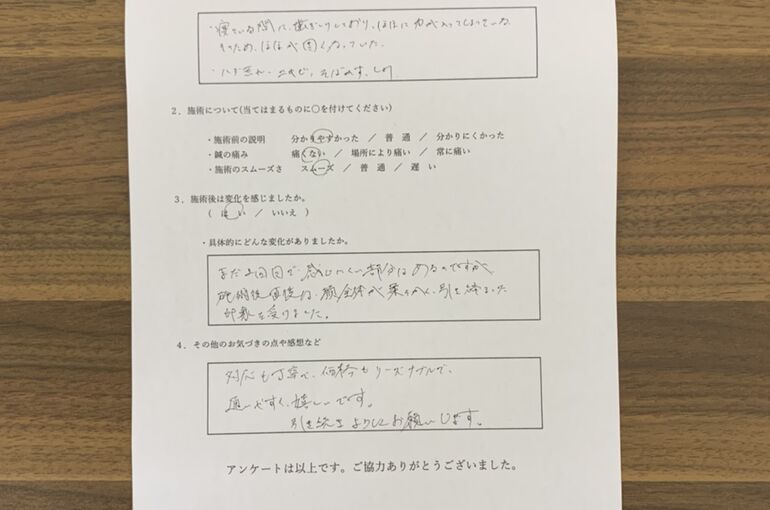 ・寝ている間に、歯ぎしりしており、ほほに力が入ってしまっている
そのため、ほほが固くなっていた。
・ニキビ、そばかす、しわ
2．施術について(当てはまるものに○を付けてください)
・施術前の説明　分かりやすかった　／　普　通　／　分かりにくかった
・鍼の痛み　痛くない　／　場所により痛い　／　常に痛い
・施術のスムーズさ　スムーズ　／　普　通　／　遅　い
3．施術後は変化を感じましたか。
(　は　い　／　いいえ　)
・具体的にどんな変化がありましたか。
まだ2回目で感じにくい部分はあるのですが
施術後直後は、顔全体が柔らかく、引き締まった
印象を受けました。
4．その他のお気づきの点や感想など
対応も丁寧で、価格もリーズナブルで、
通いやすく、嬉しいです。
引き続きよろしくお願いします。
アンケートは以上です。ご協力ありがとうございました。